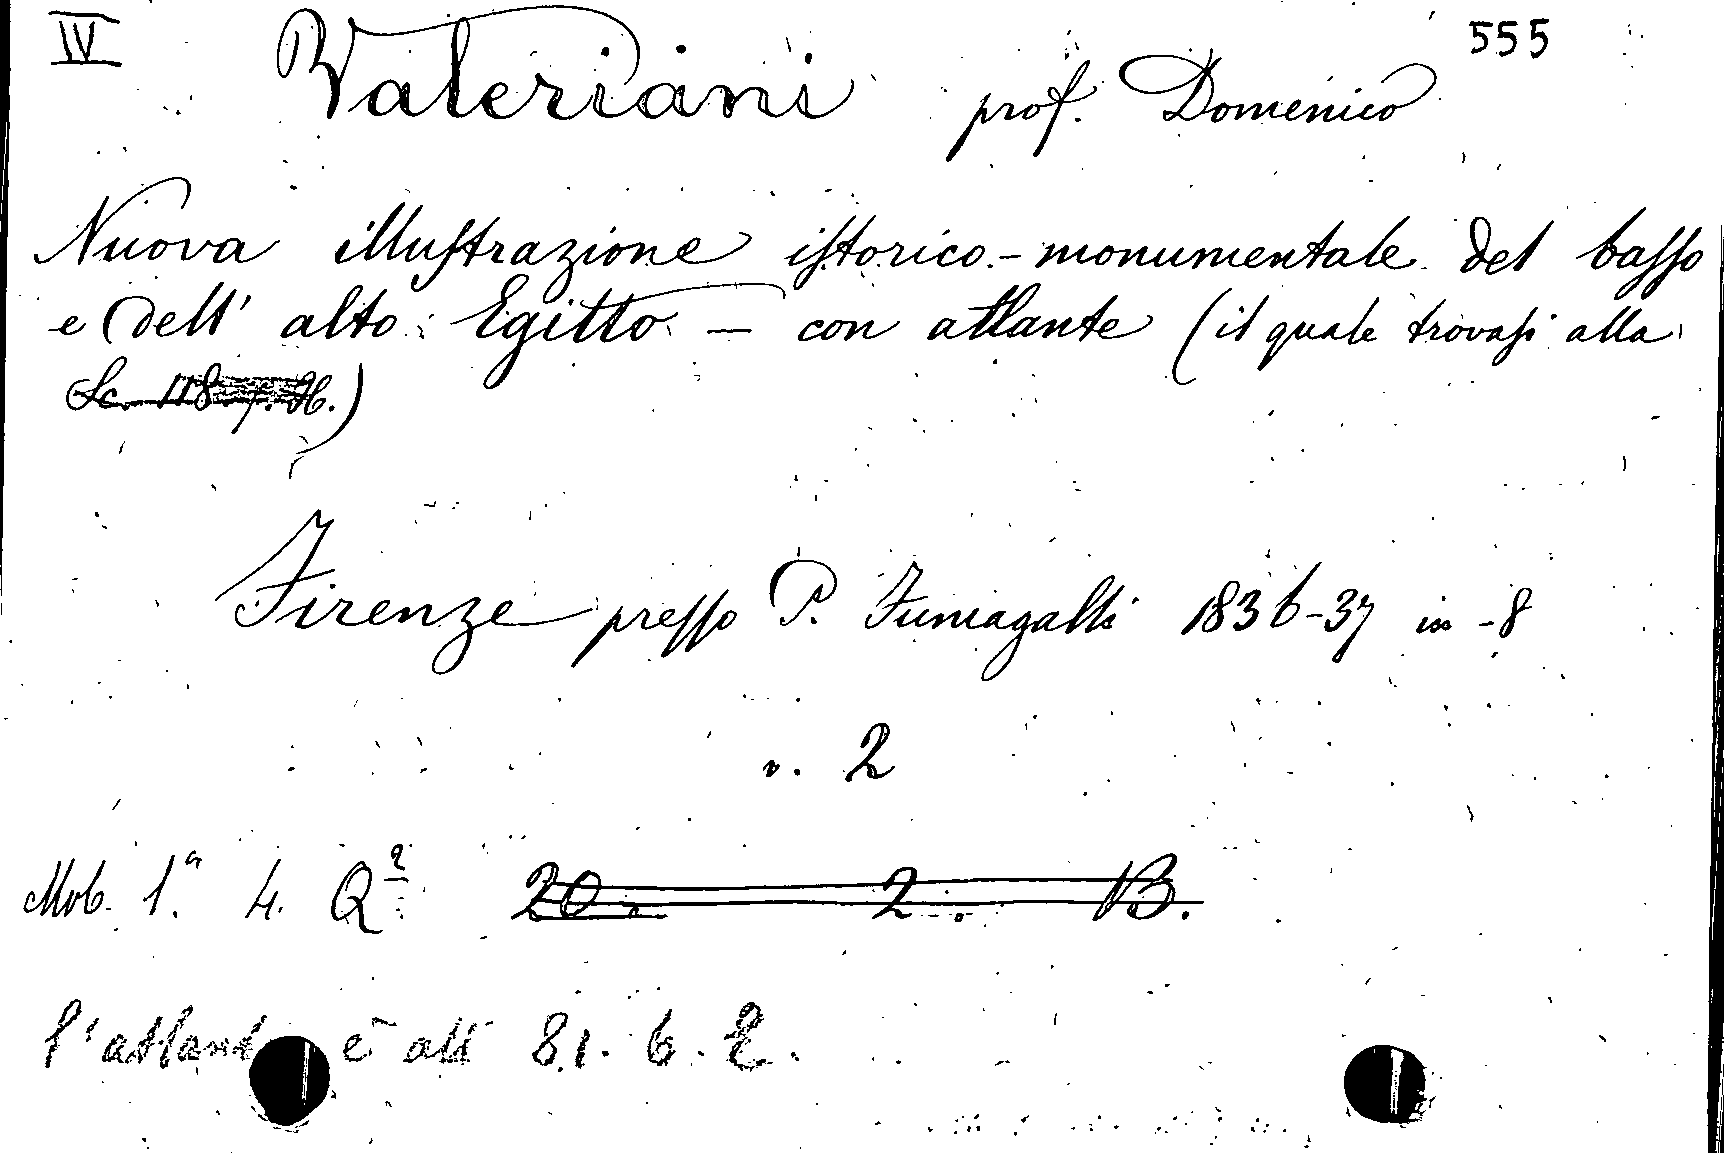 IV Valeriani prof. Domenico 555
Nuova illustrazione istorico-monumentale del basso
e dell' alto Egitto — con atlante (il quale trovasi alla
Sc. 118. f. H.)
Firenze presso P. Fumagalli 1836-37 in-8
v. 2
Mob. 1.ª 4. Q² 20. 2. B.
l'atlante è all 81. 6. 2.